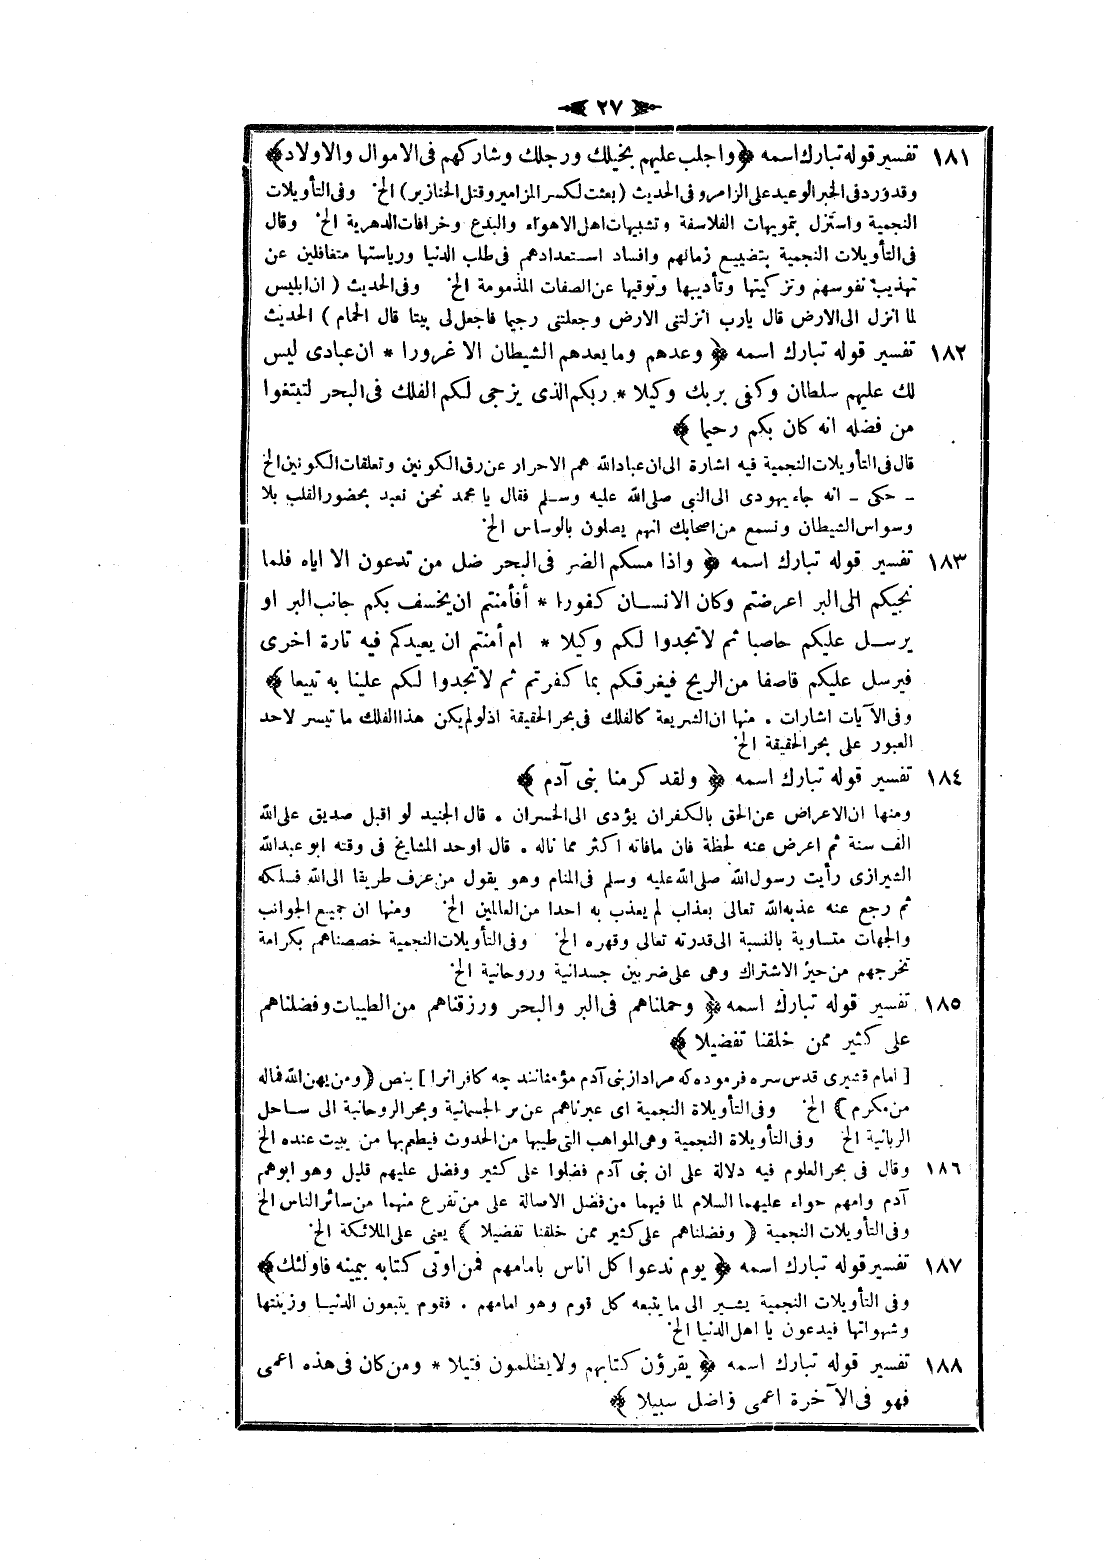 ٢٧
١٨١ تفسير قوله تبارك اسمه ﴿ واجلب عليهم بخيلك ورجلك وشاركهم فى الاموال والاولاد ﴾
وقدورد فى الخبر الوعيد على الزامر وفى الحديث (بعثت لكسر المزامير وقتل الخنازير) الخ وفى التأويلات
النجمية واستزل بتمويهات الفلاسفة وتشبيهات اهل الاهواء والبدع وخرافات الدهرية الخ وقال
فى التأويلات النجمية بتضييع زمانهم وافساد استعدادهم فى طلب الدنيا ورياستها متغافلين عن
تهذيب نفوسهم وتزكيتها وتأديبها وتوقيها عن الصفات المذمومة الخ وفى الحديث ( ان ابليس
لما انزل الى الارض قال يارب انزلتنى الارض وجعلتنى رجيما فاجعل لى بيتا قال الحمام ) الحديث
١٨٢ تفسير قوله تبارك اسمه ﴿ وعدهم وما يعدهم الشيطان الا غرورا * ان عبادى ليس
لك عليهم سلطان وكفى بربك وكيلا * ربكم الذى يزجى لكم الفلك فى البحر لتبتغوا
من فضله انه كان بكم رحيما ﴾
قال فى التأويلات النجمية فيه اشارة الى ان عباد الله هم الاحرار عن رق الكونين وتعلقات الكونين الخ
ـ حكى ـ انه جاء يهودى الى النبى صلى الله عليه وسلم فقال يا محمد نحن نعبد بحضور القلب بلا
وسواس الشيطان ونسمع من اصحابك انهم يصلون بالوساس الخ
١٨٣ تفسير قوله تبارك اسمه ﴿ واذا مسكم الضر فى البحر ضل من تدعون الا اياه فلما
نجيكم الى البر اعرضتم وكان الانسان كفورا * أفأمنتم ان يخسف بكم جانب البر او
يرسل عليكم حاصبا ثم لا تجدوا لكم وكيلا * ام أمنتم ان يعيدكم فيه تارة اخرى
فيرسل عليكم قاصفا من الريح فيغرقكم بما كفرتم ثم لا تجدوا لكم علينا به تبيعا ﴾
وفى الآيات اشارات . منها ان الشريعة كالفلك فى بحر الحقيقة اذ لو لم يكن هذا الفلك ما تيسر لاحد
العبور على بحر الحقيقة الخ
١٨٤ تفسير قوله تبارك اسمه ﴿ ولقد كرمنا بنى آدم ﴾
ومنها ان الاعراض عن الحق بالكفران يؤدى الى الخسران . قال الجنيد لو اقبل صديق على الله
الف سنة ثم اعرض عنه لحظة فان ما فاته اكثر مما ناله . قال اوحد المشايخ فى وقته ابو عبد الله
الشيرازى رأيت رسول الله صلى الله عليه وسلم فى المنام وهو يقول من عرف طريقا الى الله فسلكه
ثم رجع عنه عذبه الله تعالى بعذاب لم يعذب به احدا من العالمين الخ ومنها ان جميع الجوانب
والجهات متساوية بالنسبة الى قدرته تعالى وقهره الخ وفى التأويلات النجمية خصصناهم بكرامة
تخرجهم من حيز الاشتراك وهى على ضربين جسدانية وروحانية الخ
١٨٥ تفسير قوله تبارك اسمه ﴿ وحملناهم فى البر والبحر ورزقناهم من الطيبات وفضلناهم
على كثير ممن خلقنا تفضيلا ﴾
[ امام قشيرى قدس سره فرموده كه مراد از بنى آدم مؤمنانند چه كافرانرا ] بنص ( ومن يهن الله فما له
من مكرم ) الخ وفى التأويلاة النجمية اى عبرناهم عن بر الجسمانية وبحر الروحانية الى ساحل
الربانية الخ وفى التأويلاة النجمية وهى المواهب التى طيبها من الحدوث فيطعم بها من يبيت عنده الخ
١٨٦ وقال فى بحر العلوم فيه دلالة على ان بنى آدم فضلوا على كثير وفضل عليهم قليل وهو ابوهم
آدم وامهم حواء عليهما السلام لما فيهما من فضل الاصالة على من تفرع منهما من سائر الناس الخ
وفى التأويلات النجمية ( وفضلناهم على كثير ممن خلقنا تفضيلا ) يعنى على الملائكة الخ
١٨٧ تفسير قوله تبارك اسمه ﴿ يوم ندعوا كل اناس بامامهم فمن اوتى كتابه بيمينه فاولئك ﴾
وفى التأويلات النجمية يشير الى ما يتبعه كل قوم وهو امامهم . فقوم يتبعون الدنيا وزينتها
وشهواتها فيدعون يا اهل الدنيا الخ
١٨٨ تفسير قوله تبارك اسمه ﴿ يقرؤن كتابهم ولا يظلمون فتيلا * ومن كان فى هذه اعمى
فهو فى الآخرة اعمى واضل سبيلا ﴾